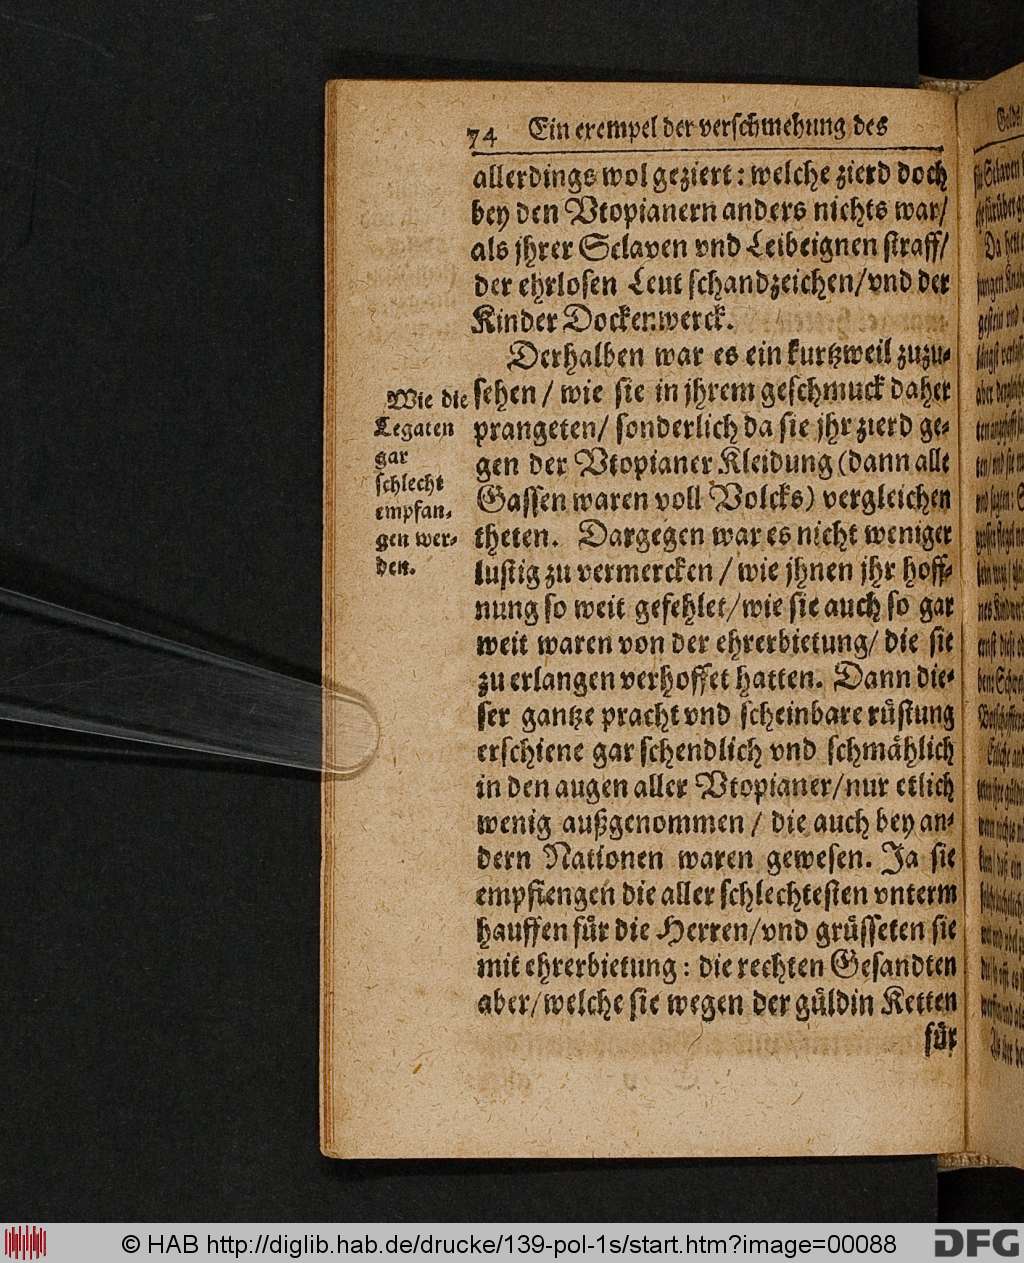 74 Ein exempel der verschmehung des
allerdings wol geziert: welche zierd doch
bey den Vtopianern anders nichts war/
als jhrer Sclaven vnd Leibeignen straff/
der ehrlosen Leut schandzeichen/vnd der
Kinder Dockenwerck.
Derhalben war es ein kurtzweil zuzu-
sehen/ wie sie in jhrem geschmuck daher
prangeten/ sonderlich da sie jhr zierd ge-
gen der Vtopianer Kleidung (dann alle
Gassen waren voll Volcks) vergleichen
theten. Dargegen war es nicht weniger
lustig zu vermercken/ wie jhnen jhr hoff-
nung so weit gefehlet/wie sie auch so gar
weit waren von der ehrerbietung/ die sie
zu erlangen verhoffet hatten. Dann die-
ser gantze pracht vnd scheinbare rüstung
erschiene gar schendlich vnd schmählich
in den augen aller Vtopianer/nur etlich
wenig außgenommen/ die auch bey an-
dern Nationen waren gewesen. Ja sie
empfiengen die aller schlechtesten vnterm
hauffen für die Herren/vnd grüsseten sie
mit ehrerbietung: die rechten Gesandten
aber/welche sie wegen der güldin Ketten
für
Wie die
Legaten
gar
schlecht
empfan-
gen wer-
den.
© HAB http://diglib.hab.de/drucke/139-pol-1s/start.htm?image=00088
DFG